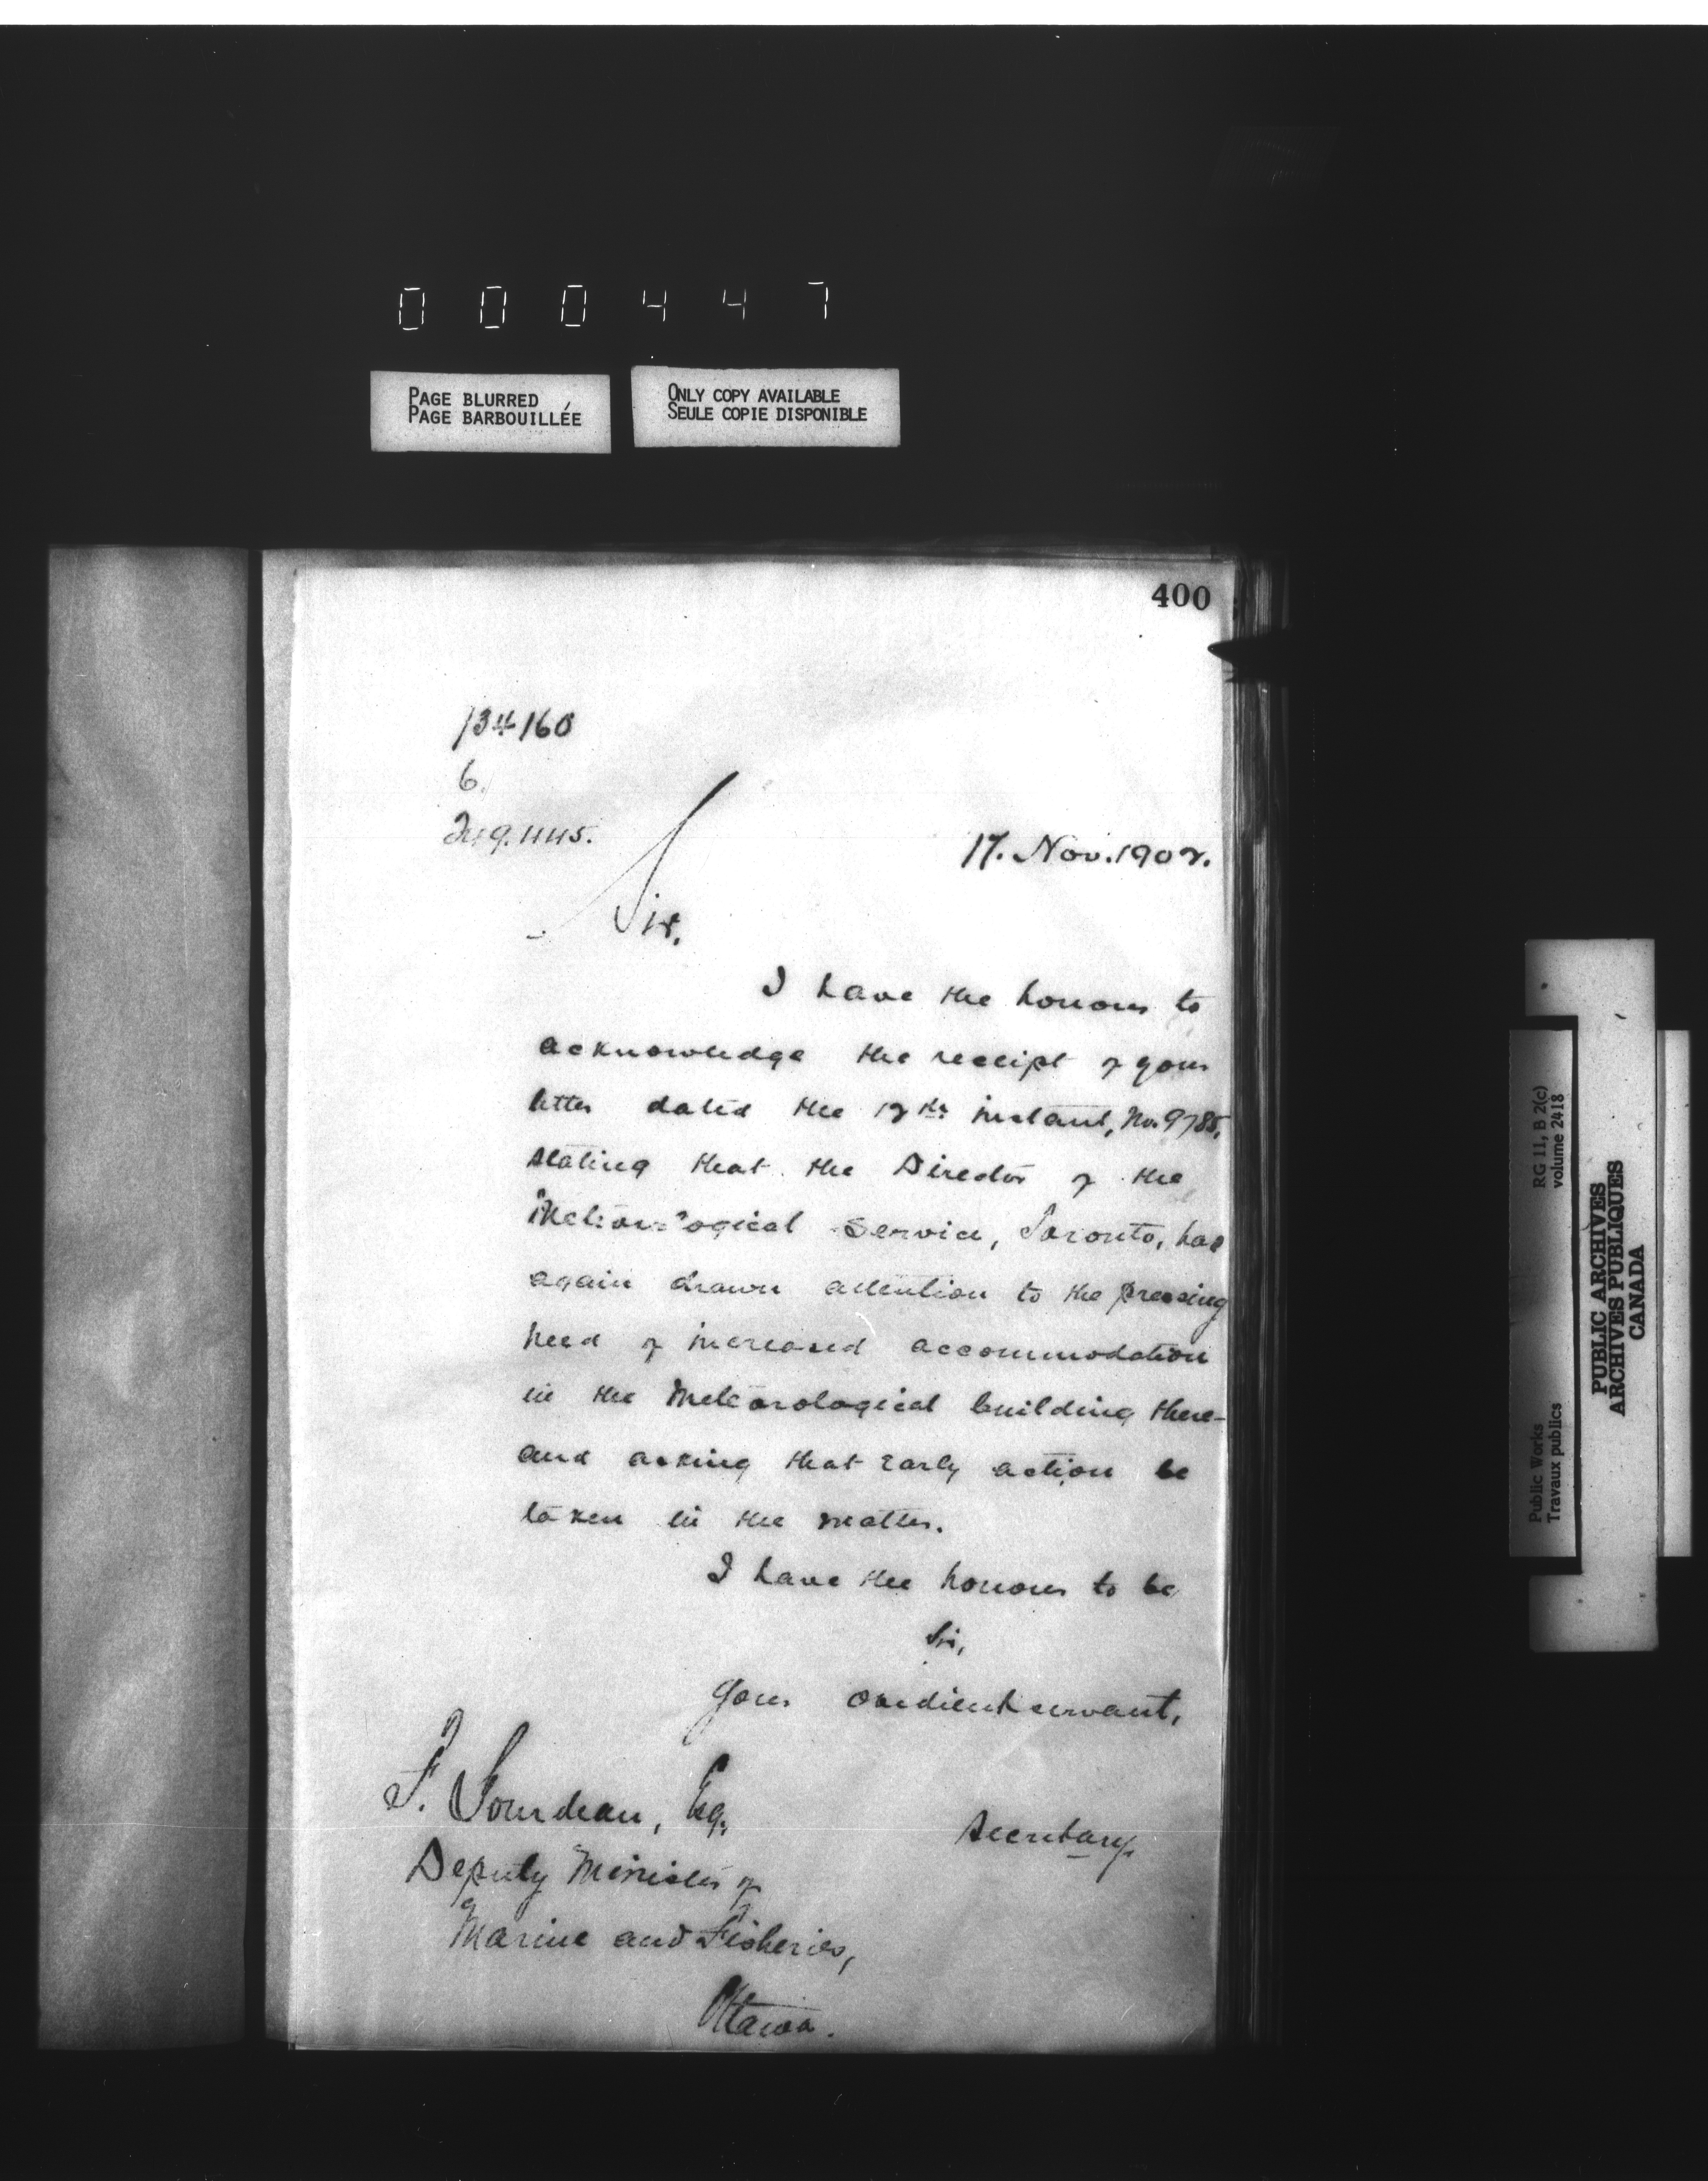 000447
PAGE BLURRED
PAGE BARBOUILLÉE
ONLY COPY AVAILABLE
SEULE COPIE DISPONIBLE
400
134160
6.
17. Nov. 1902.
Sir,
I have the honour to
acknowledge the receipt of your
letter dated the instant, No. 9785,
stating that the Director of the
Meteorological Service, Toronto, has
again drawn attention to the pressing
need of increased accommodation
in the Meteorological building there-
and asking that early action be
taken in the matter.
I have the honour to be
Sir,
Your obedient servant,
F. Gourdeau, Esq.,
Secretary.
Deputy Minister of
Marine and Fisheries,
Ottawa.
Public Works
Travaux publics
RG 11, B 2(c)
volume 2418
PUBLIC ARCHIVES
ARCHIVES PUBLIQUES
CANADA